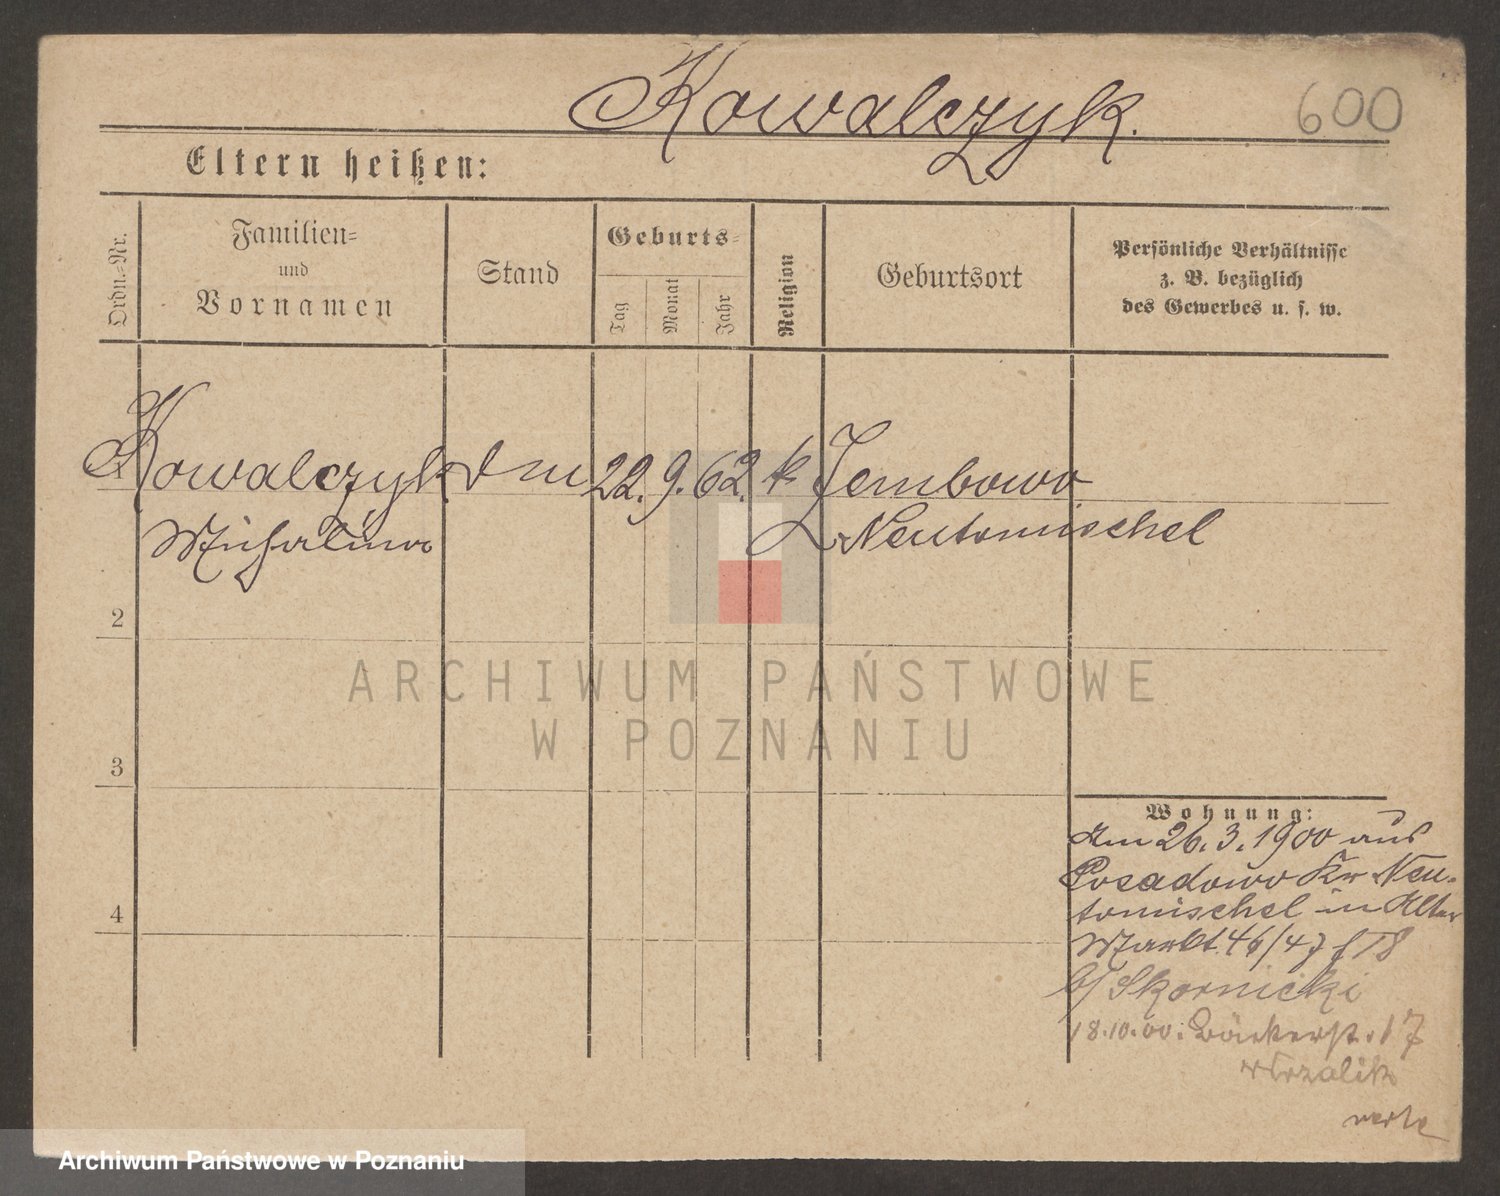 Kowalczyk.
600
Eltern heißen:
Ordn.-Nr.
Familien-
und
Vornamen
Stand
Geburts-
Tag
Monat
Jahr
Religion
Geburtsort
Persönliche Verhältnisse
z. B. bezüglich
des Gewerbes u. s. w.
1 Kowalczyk 22. 9. 62. k
Michalina Neutomischel
2
3
4
Wohnung:
Am 26. 3. 1900 aus
Posadowo Kr Neu-
tomischel in Alter
Markt 46/47
b/ Skornicki
18.10.00. Bäckerst. 17
ARCHIWUM PAŃSTWOWE
W POZNANIU
Archiwum Państwowe w Poznaniu